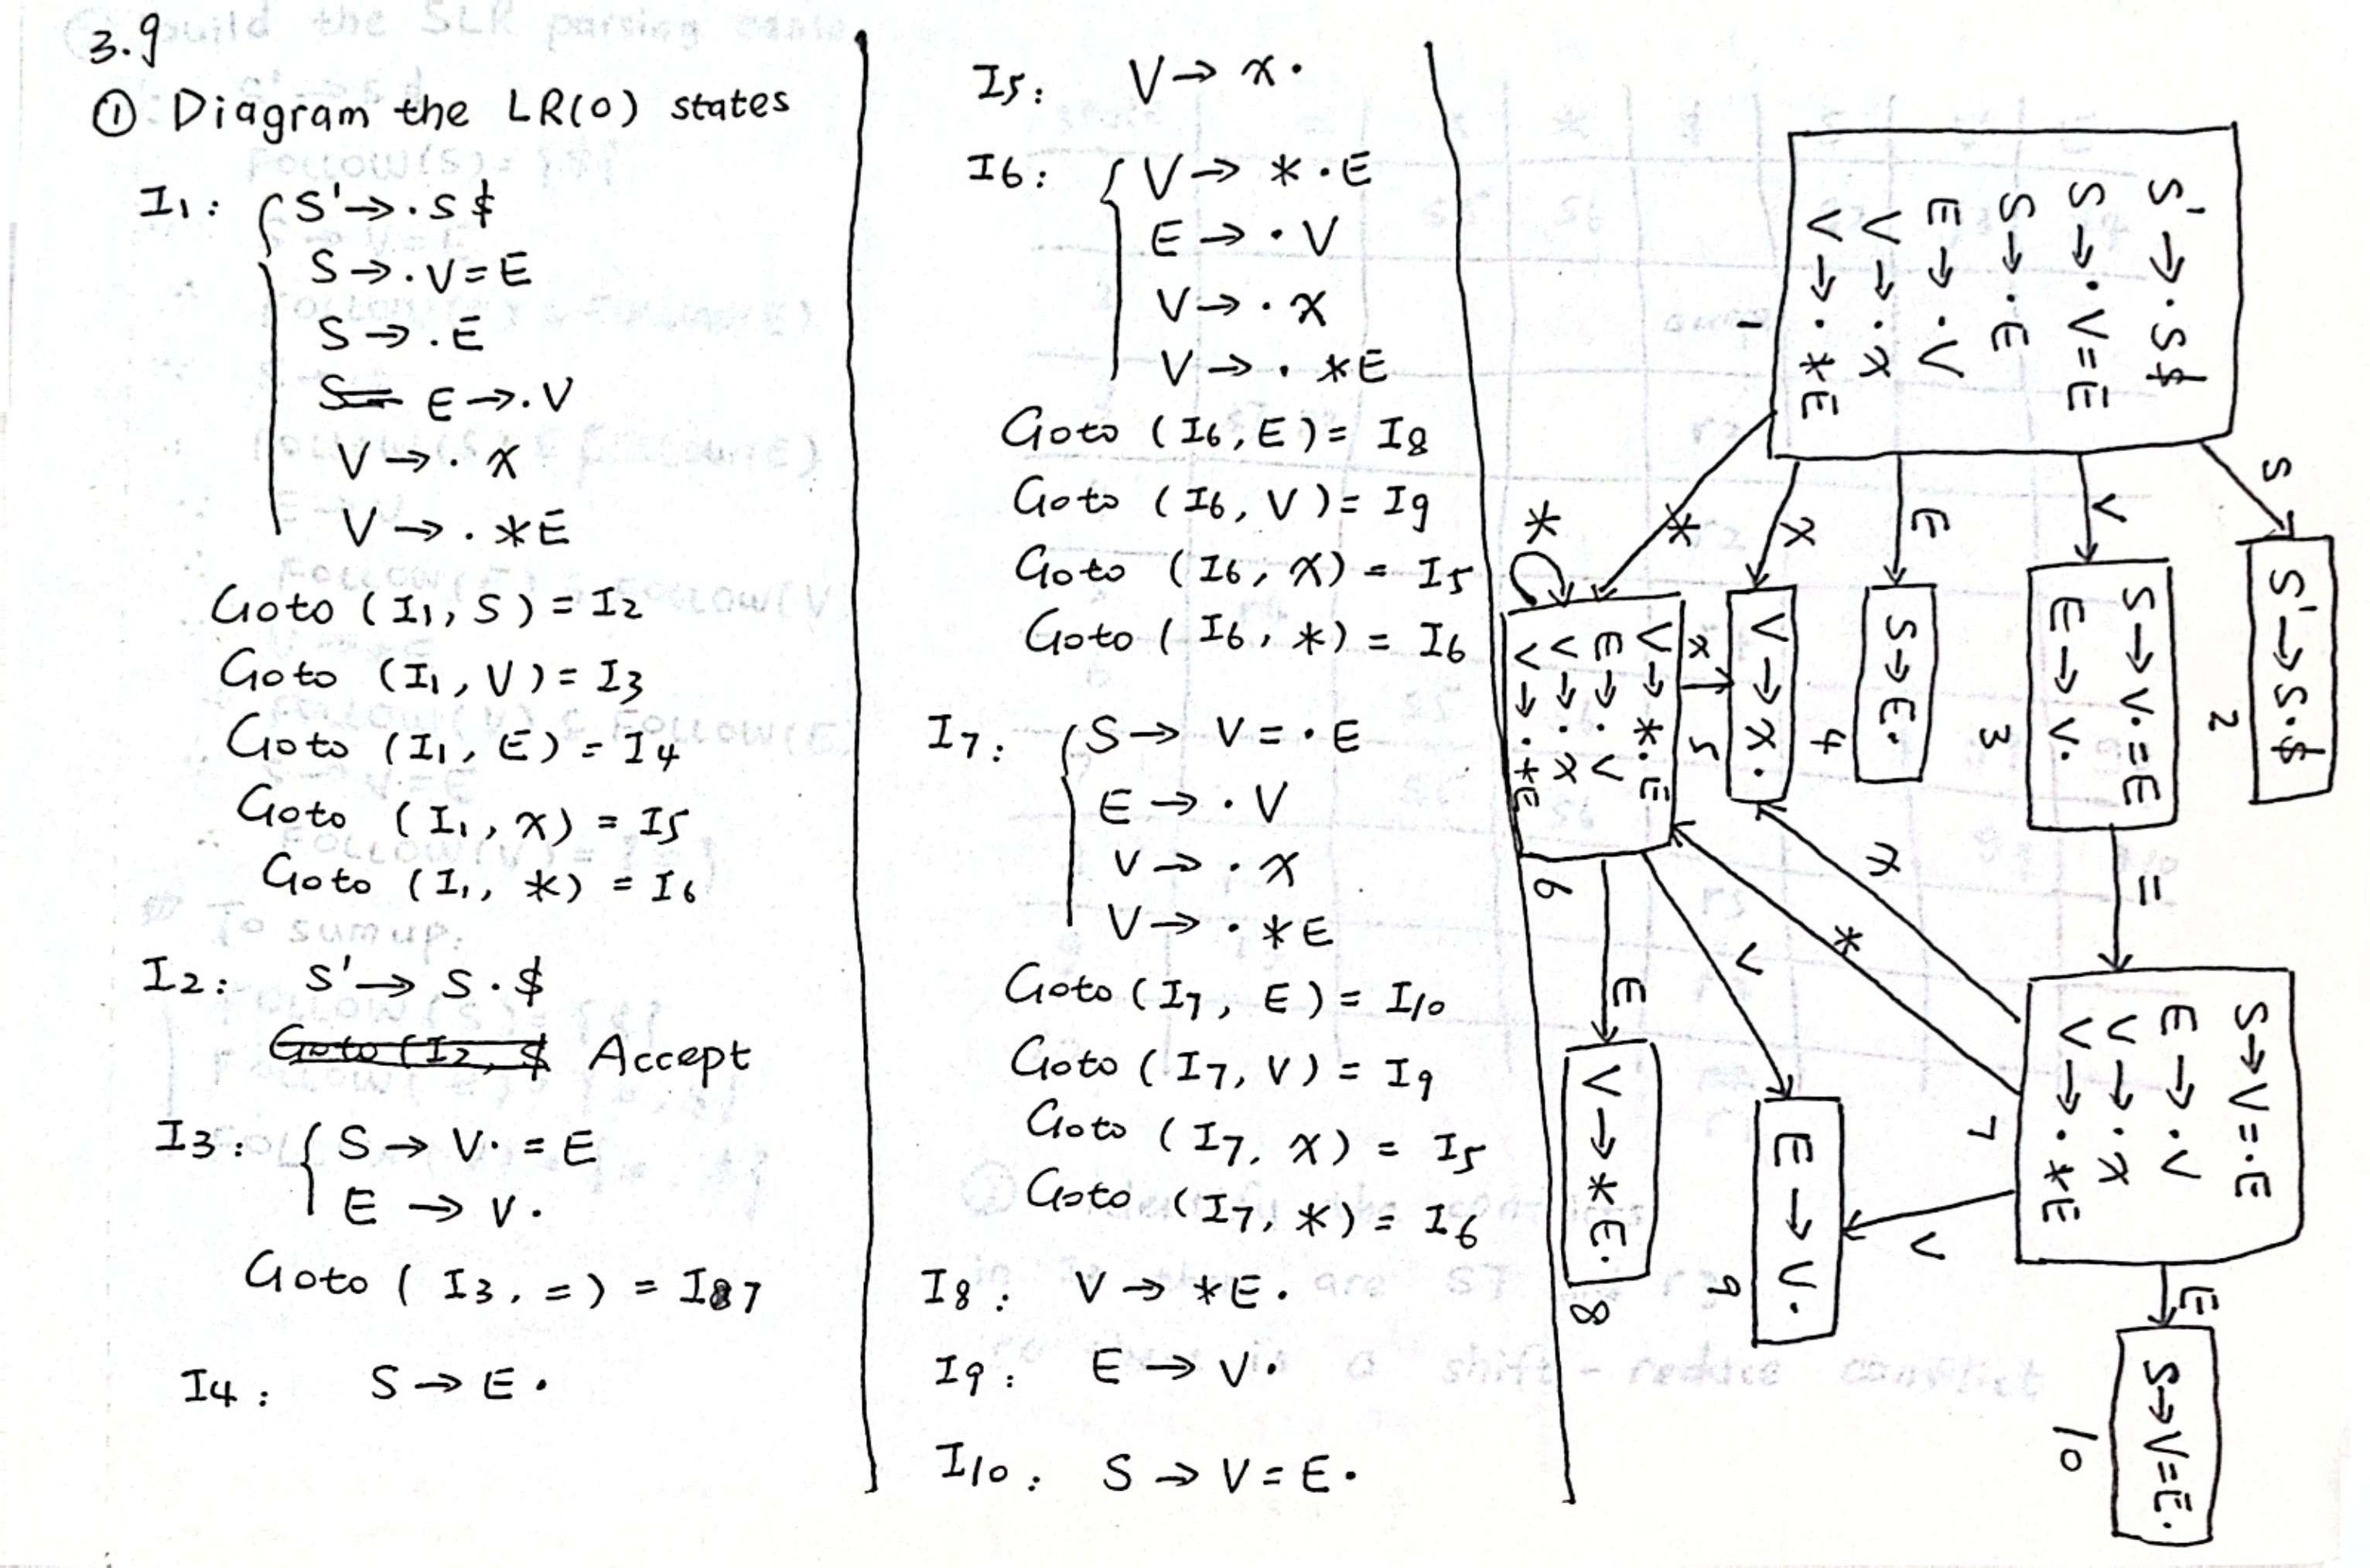 3.9
① Diagram the LR(0) states
I1: S'→.S$
S→.V=E
S→.E
E→.V
V→.x
V→.*E
Goto (I1, S) = I2
Goto (I1, V) = I3
Goto (I1, E) = I4
Goto (I1, x) = I5
Goto (I1, *) = I6
I2: S'→S.$
Goto (I2, $ Accept
I3: S→V.=E
E→V.
Goto (I3, =) = I7
I4: S→E.
I5: V→x.
I6: V→*.E
E→.V
V→.x
V→.*E
Goto (I6, E) = I8
Goto (I6, V) = I9
Goto (I6, x) = I5
Goto (I6, *) = I6
I7: S→V=.E
E→.V
V→.x
V→.*E
Goto (I7, E) = I10
Goto (I7, V) = I9
Goto (I7, x) = I5
Goto (I7, *) = I6
I8: V→*E.
I9: E→V.
I10: S→V=E.
S'→.S$
S→.V=E
S→.E
E→.V
V→.x
V→.*E
1
S
V
E
x
*
S'→S.$
2
S→V.=E
E→V.
3
S→E.
4
V→x.
5
V→*.E
E→.V
V→.x
V→.*E
6
*
x
=
x
*
V
E
S→V=.E
E→.V
V→.x
V→.*E
7
V
E
V→*E.
8
E→V.
9
S→V=E.
10